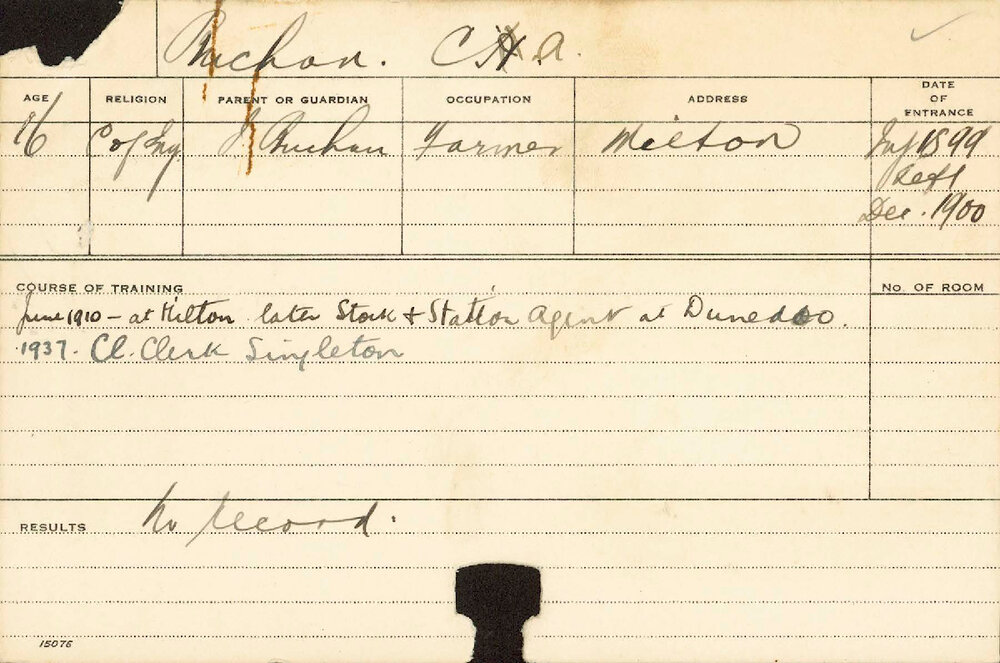 Buchan. C. A.
AGE RELIGION PARENT OR GUARDIAN OCCUPATION ADDRESS DATE OF ENTRANCE
16 C of Eng J. Buchan Farmer Milton July 1899
Left
Dec. 1900
COURSE OF TRAINING No. OF ROOM
June 1910 – at Milton later Stock & Station Agent at Dunedoo.
1937. Cl. Clerk Singleton
RESULTS No record.
15076